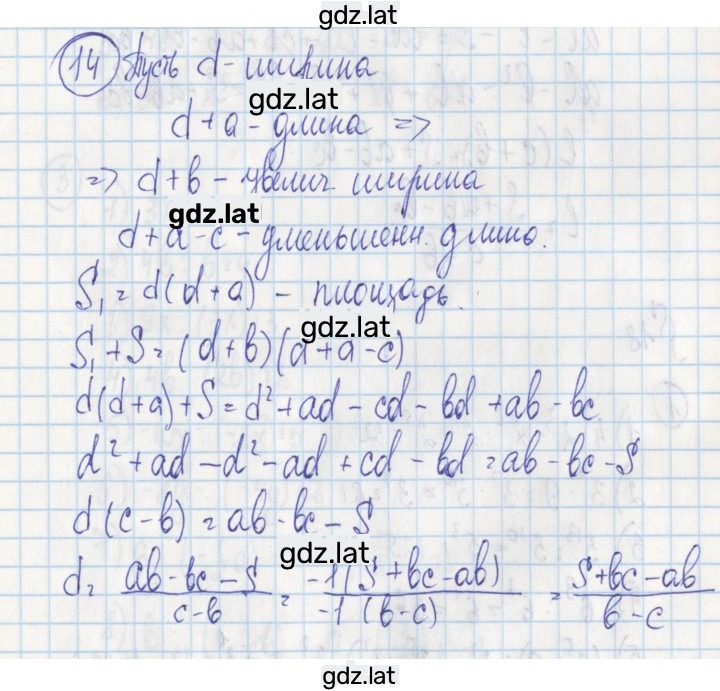 gdz.lat
14 Пусть d - ширина
gdz.lat
d + a - длина =>
=> d + b - увелич. ширина
gdz.lat
d + a - c - уменьшенн. длина.
S₁ = d(d + a) - площадь.
gdz.lat
S₁ + S = (d + b)(d + a - c)
d(d + a) + S = d² + ad - cd - bd + ab - bc
d² + ad - d² - ad + cd - bd = ab - bc - S
d(c - b) = ab - bc - S
gdz.lat
d = (ab - bc - S)/(c - b) = (-1(S + bc - ab))/(-1(b - c)) = (S + bc - ab)/(b - c)
gdz.lat